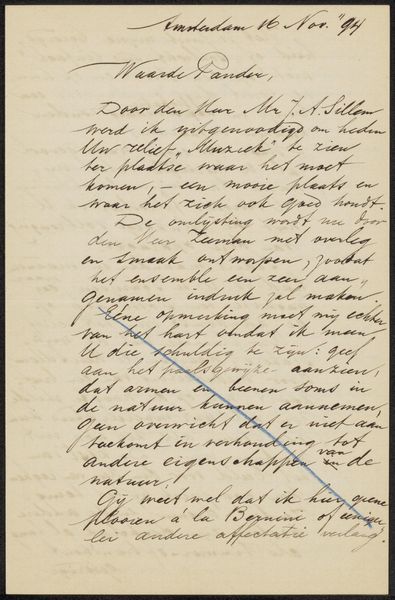 Amsterdam 16 Nov. "94
Waarde Pander,
Door den Heer Mr J. A. Sillem
werd ik uitgenoodigd om heden
Uw relief "Muziek" te zien
ter plaatse waar het moet
komen, – een mooie plaats en
waar het zich ook goed houdt.
De omlijsting wordt nu door
den Heer Zeeman met overleg
en smaak ontworpen, zoodat
het ensemble een zeer aan-
genamen indruk zal maken.
Eéne opmerking moet mij echter
van het hart omdat ik meen
U die schuldig te zijn: geef
aan het paalsgewijze aanzien,
dat armen en beenen soms in
de natuur kunnen aannemen,
geen overwicht dat er niet aan
toekomt in verhouding tot
andere eigenschappen van de
natuur.
Gij weet wel dat ik hier geene
plooien á la Bernini of eeniger
lei andere affectatie verlang.